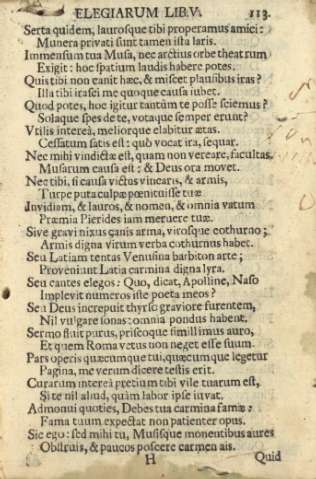 ELEGIARUM LIB. V. 113.
Serta quidem, laurosque tibi properamus amici:
Munera privati sunt tamen ista laris.
Immensum tua Musa, nec arctius orbe theatrum
Exigit: hoc spatium laudis habere potes.
Quis tibi non canit hæc, & miscet plausibus iras?
Illa tibi irasci me quoque causa jubet.
Quod potes, hoc igitur tantùm te posse sciemus?
Solaque spes de te, votaque semper erunt?
Vtilis intereà, meliorque elabitur ætas.
Cessatum satis est: quò vocat ira, sequar.
Nec mihi vindictæ est, quam non vereare, facultas.
Musarum causa est: & Deus ora movet.
Nec tibi, si causa victus vincaris, & armis,
Turpe puta culpæ pœnituisse tuæ
Invidiam, & lauros, & nomen, & omnia vatum
Præmia Pierides iam meruere tuæ.
Sive gravi nixus canis arma, virosque cothurno;
Armis digna virum verba cothurnus habet.
Seu Latiam tentas Venusina barbiton arte;
Proveniunt Latia carmina digna lyra.
Seu cantes elegos: Quo, dicat, Apolline, Naso
Implevit numeros iste poeta meos?
Seu Deus increpuit thyrso graviore furentem,
Nil vulgare sonas: omnia pondus habent.
Sermo fluit purus, priscoque simillimus auro,
Et quem Roma vetus non neget esse suum.
Pars operis quæcumque tui, quæcumque legetur
Pagina, me verum dicere testis erit.
Curarum intereà pretium tibi vile tuarum est,
Si te nil aliud, quàm labor ipse iuvat.
Admonui quoties, Debes tua carmina famæ:
Fama tuum expectat non patienter opus.
Sic ego: sed mihi tu, Musisque monentibus aures
Obstruis, & paucos poscere carmen ais.
H Quid